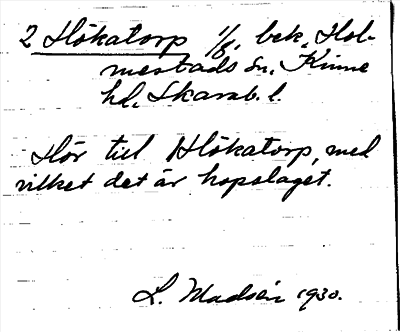 2 Hökatorp 1/8, bek, Hol-
mestads sn, Kinne
hd, Skarab. l.
Hör till Hökatorp, med
vilket det är hopslaget.
L. Madsén 1930.